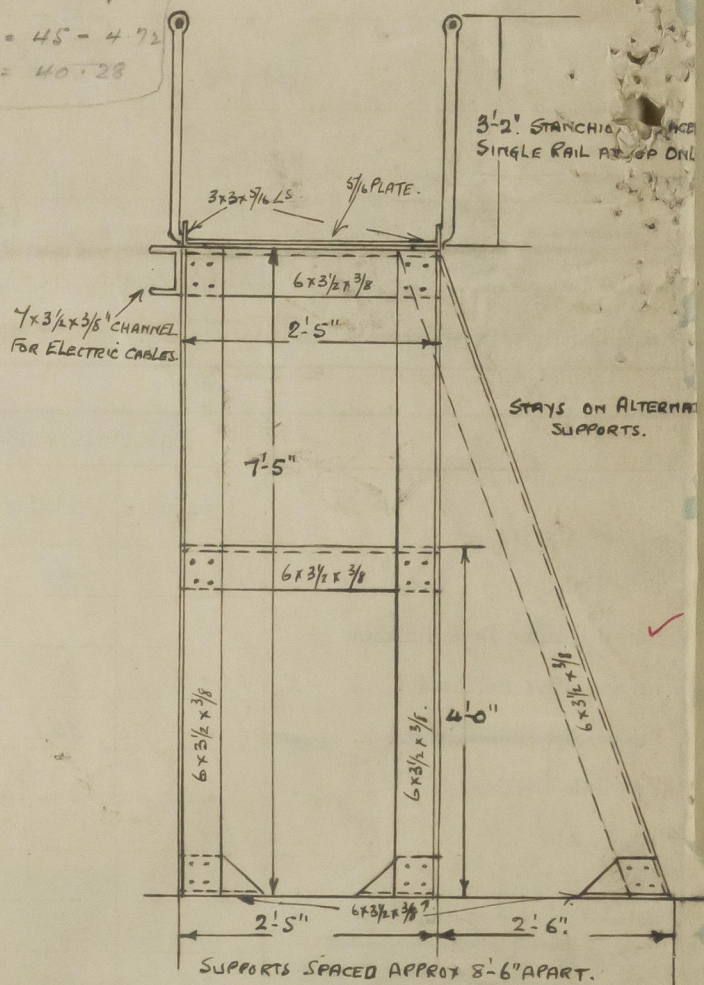 = 45 - 4.72
= 40.28
3'-2". STANCHIO
SINGLE RAIL AT TOP ONL
3x3x5/16 Ls
5/16 PLATE.
6x3½x3/8
7x3½x3/8" CHANNEL
FOR ELECTRIC CABLES.
2'-5"
STAYS ON ALTERNA
SUPPORTS.
7'-5"
6x3½x3/8
6x3½x3/8
6x3½x3/8.
4'-0"
6x3½x3/8.
6x3½x3/8"
2'-5"
2'-6"
SUPPORTS SPACED APPROX 8'-6" APART.